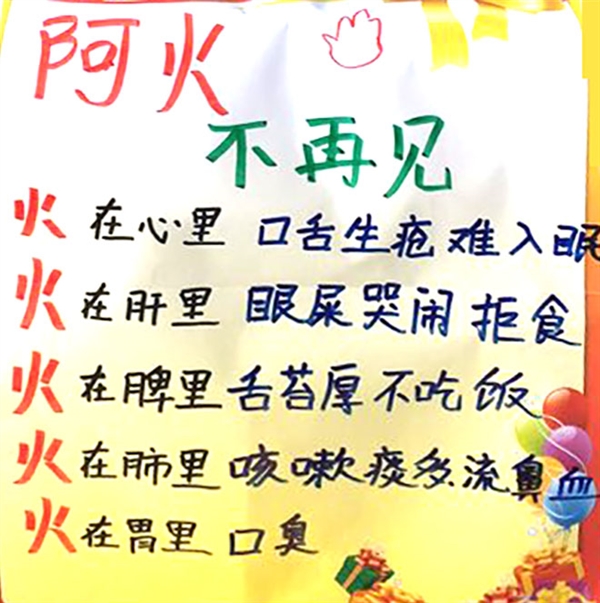 阿火
不再见
火在心里 口舌生疮难入眠
火在肝里 眼屎哭闹拒食
火在脾里舌苔厚不吃饭
火在肺里 咳嗽痰多流鼻血
火在胃里 口臭